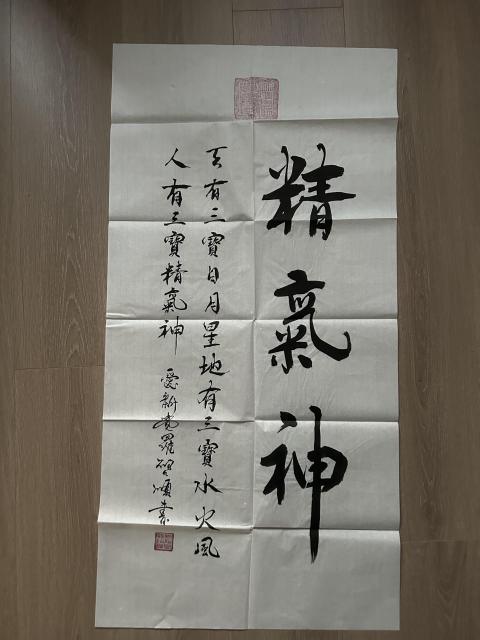 精氣神
天有三寶日月星地有三寶水火風
人有三寶精氣神
愛新覺羅智順書